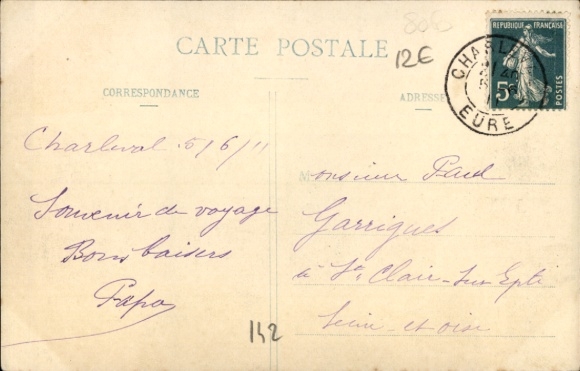 80€
12€
CARTE POSTALE
REPUBLIQUE FRANÇAISE
5c
POSTES
EURE
CORRESPONDANCE
ADRESSE
Charleval 5/6/11
Souvenir de voyage
Bons baisers
Papa
Monsieur Paul
Garrigues
à St Clair-sur-Epte
Seine-et-oise
142